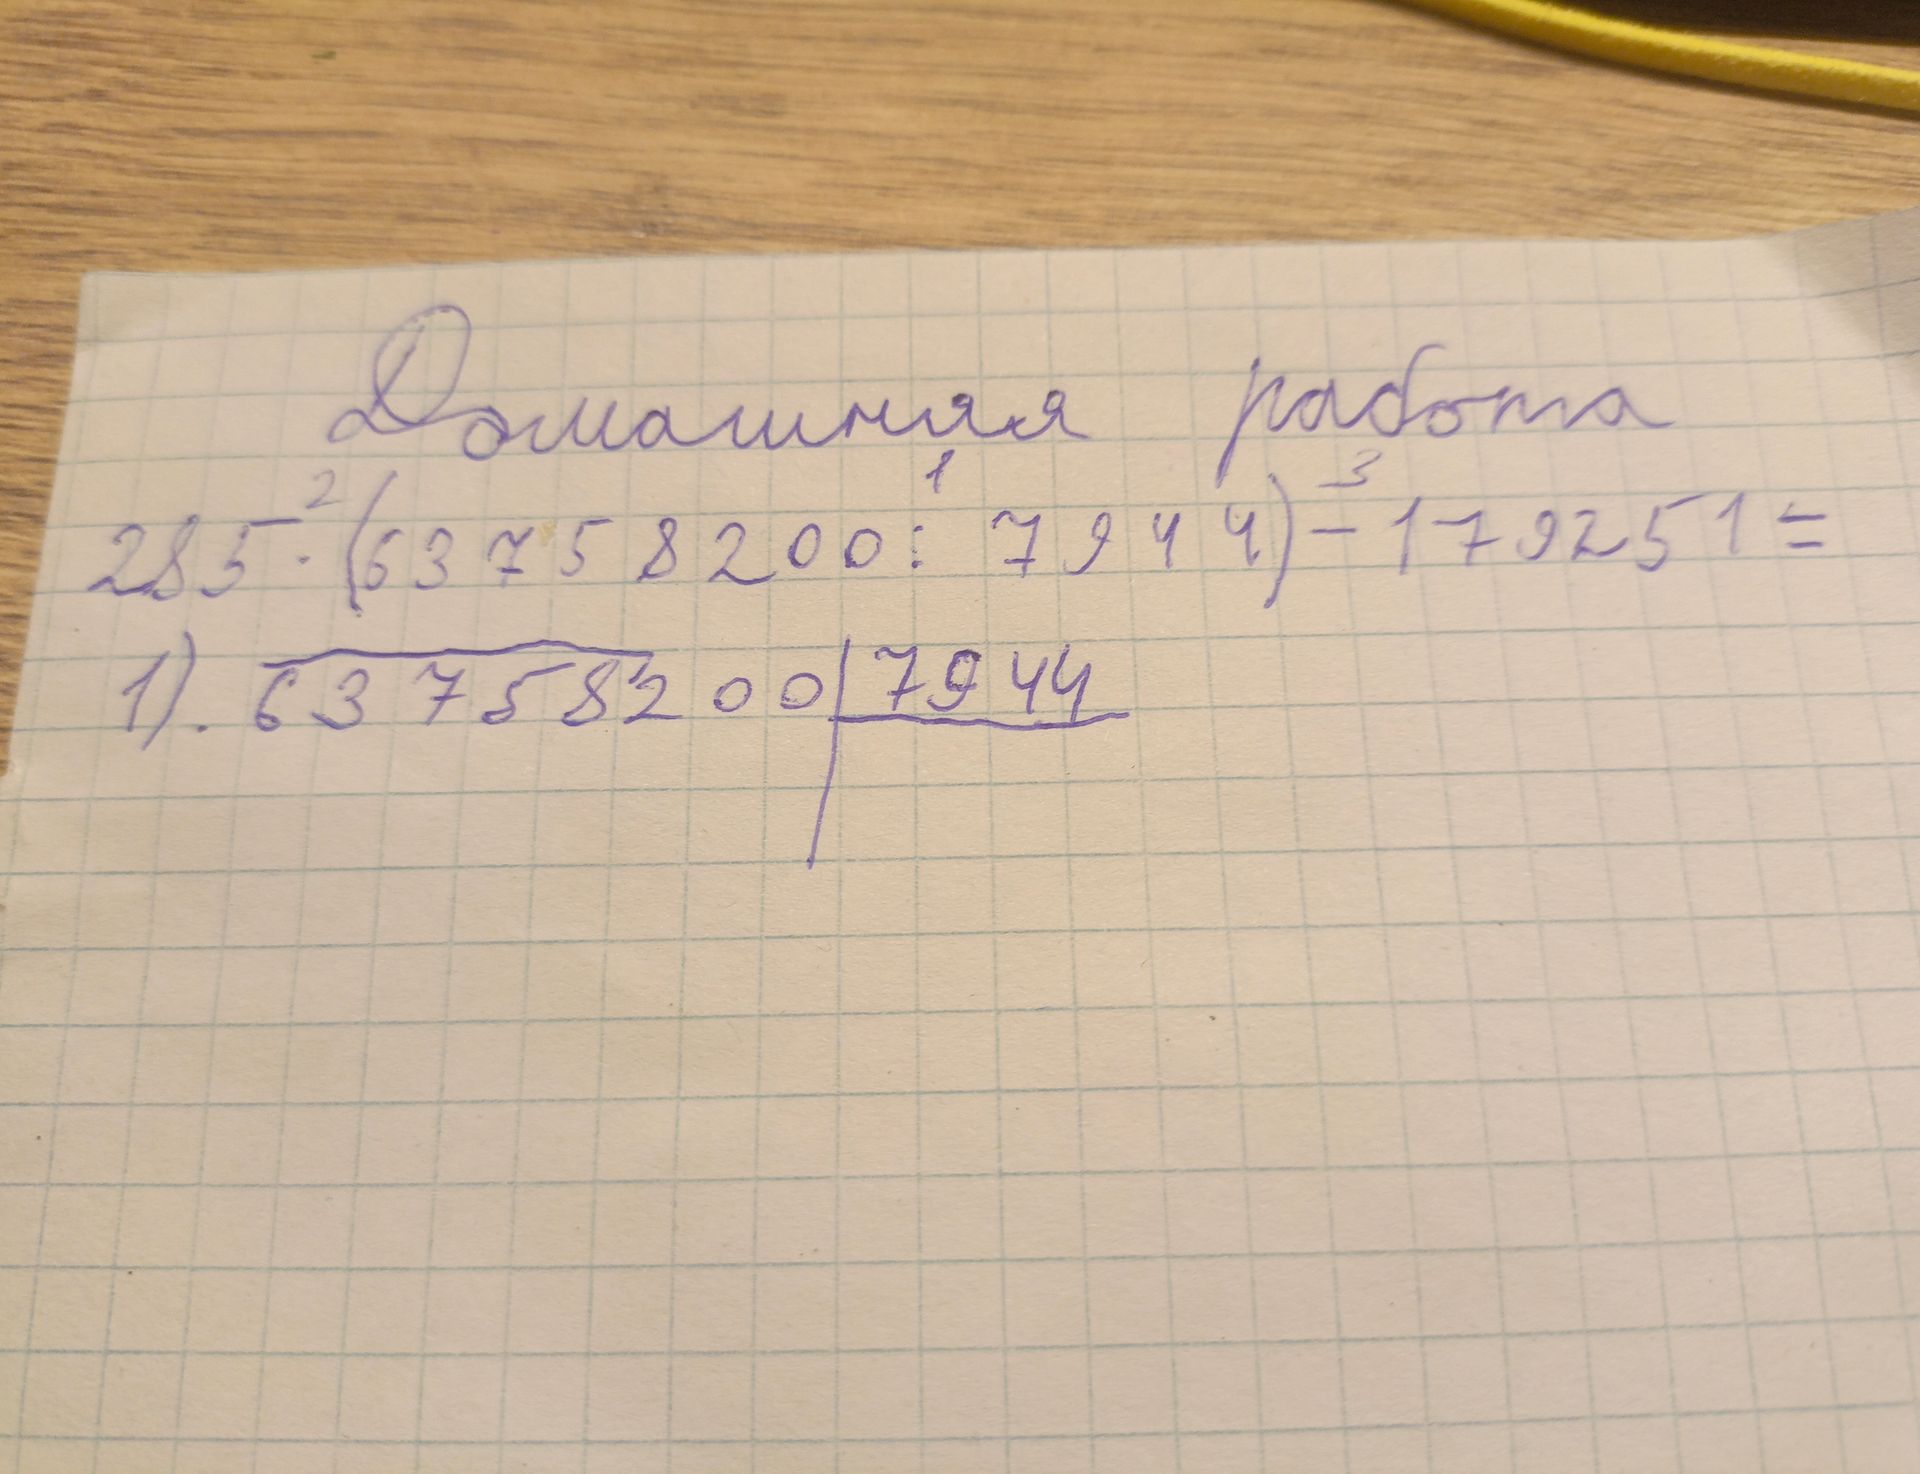 Домашняя работа
2 1 3
285·(63758200:7944)-179251=
1). 63758200 7944